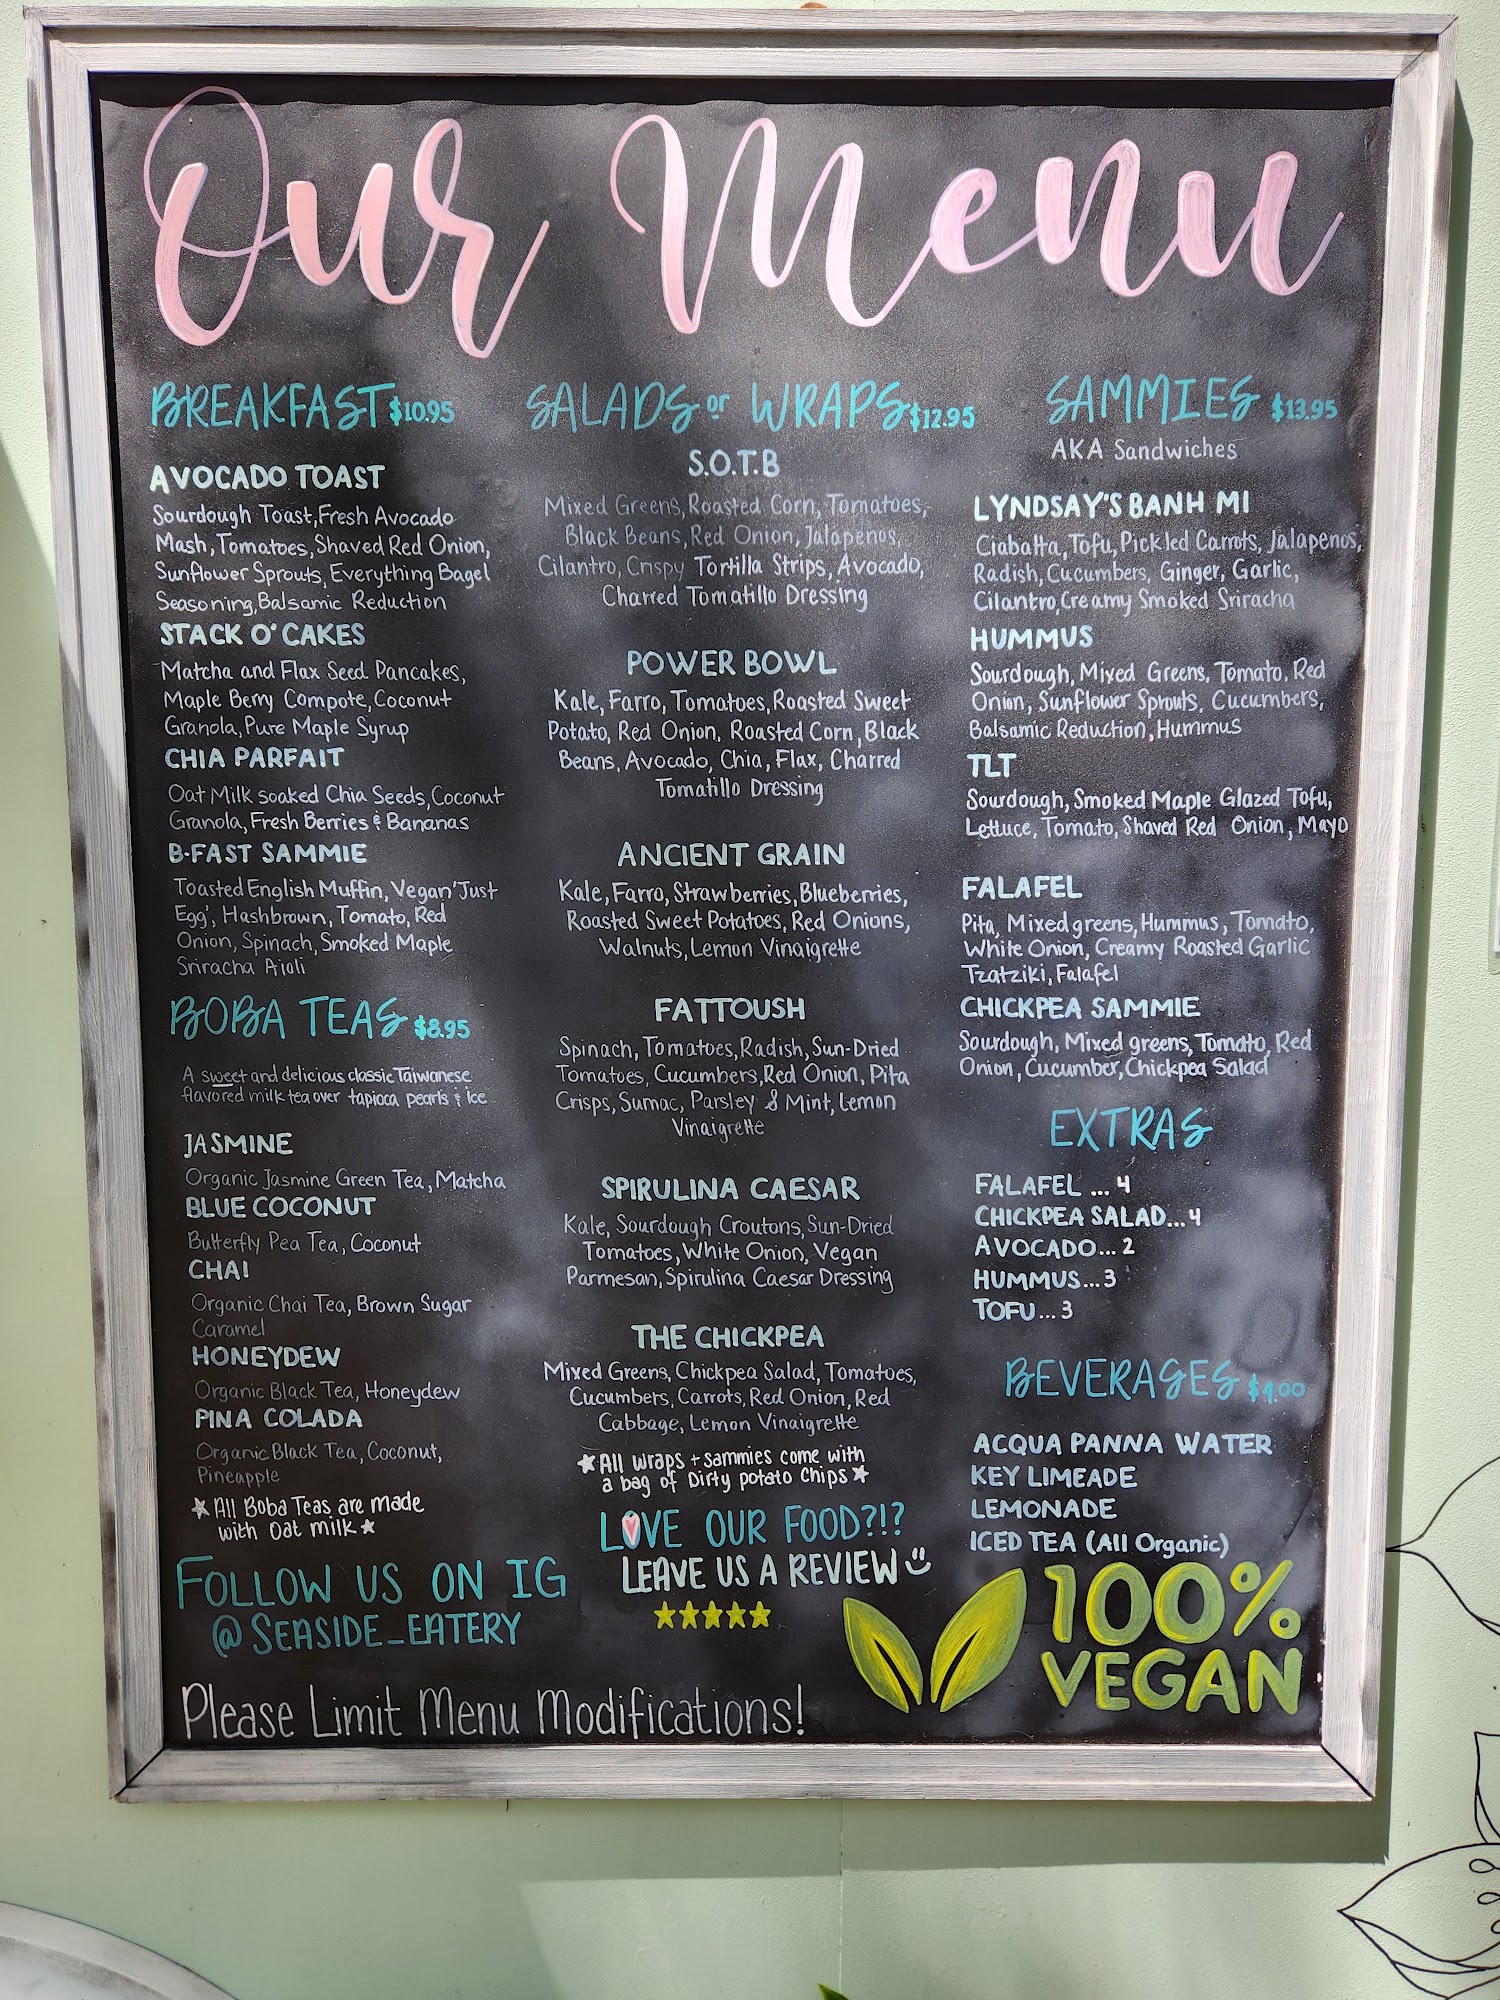 Our Menu
BREAKFAST $10.95
AVOCADO TOAST
Sourdough Toast, Fresh Avocado
Mash, Tomatoes, Shaved Red Onion,
Sunflower Sprouts, Everything Bagel
Seasoning, Balsamic Reduction
STACK O' CAKES
Matcha and Flax Seed Pancakes,
Maple Berry Compote, Coconut
Granola, Pure Maple Syrup
CHIA PARFAIT
Oat Milk soaked Chia Seeds, Coconut
Granola, Fresh Berries & Bananas
B-FAST SAMMIE
Toasted English Muffin, Vegan 'Just
Egg', Hashbrown, Tomato, Red
Onion, Spinach, Smoked Maple
Sriracha Aioli
BOBA TEAS $8.95
A sweet and delicious classic Taiwanese
flavored milk tea over tapioca pearls & Ice
JASMINE
Organic Jasmine Green Tea, Matcha
BLUE COCONUT
Butterfly Pea Tea, Coconut
CHAI
Organic Chai Tea, Brown Sugar
Caramel
HONEYDEW
Organic Black Tea, Honeydew
PINA COLADA
Organic Black Tea, Coconut,
Pineapple
★ All Boba Teas are made
with Oat milk ★
FOLLOW US ON IG
@ SEASIDE_EATERY
SALADS or WRAPS $12.95
S.O.T.B
Mixed Greens, Roasted Corn, Tomatoes,
Black Beans, Red Onion, Jalapenos,
Cilantro, Crispy Tortilla Strips, Avocado,
Charred Tomatillo Dressing
POWER BOWL
Kale, Farro, Tomatoes, Roasted Sweet
Potato, Red Onion, Roasted Corn, Black
Beans, Avocado, Chia, Flax, Charred
Tomatillo Dressing
ANCIENT GRAIN
Kale, Farro, Strawberries, Blueberries,
Roasted Sweet Potatoes, Red Onions,
Walnuts, Lemon Vinaigrette
FATTOUSH
Spinach, Tomatoes, Radish, Sun-Dried
Tomatoes, Cucumbers, Red Onion, Pita
Crisps, Sumac, Parsley & Mint, Lemon
Vinaigrette
SPIRULINA CAESAR
Kale, Sourdough Croutons, Sun-Dried
Tomatoes, White Onion, Vegan
Parmesan, Spirulina Caesar Dressing
THE CHICKPEA
Mixed Greens, Chickpea Salad, Tomatoes,
Cucumbers, Carrots, Red Onion, Red
Cabbage, Lemon Vinaigrette
★ All wraps + sammies come with
a bag of Dirty potato chips ★
LOVE OUR FOOD?!?
LEAVE US A REVIEW
SAMMIES $13.95
AKA Sandwiches
LYNDSAY'S BANH MI
Ciabatta, Tofu, Pickled Carrots, Jalapenos,
Radish, Cucumbers, Ginger, Garlic,
Cilantro, Creamy Smoked Sriracha
HUMMUS
Sourdough, Mixed Greens, Tomato, Red
Onion, Sunflower Sprouts, Cucumbers,
Balsamic Reduction, Hummus
TLT
Sourdough, Smoked Maple Glazed Tofu,
Lettuce, Tomato, Shaved Red Onion, Mayo
FALAFEL
Pita, Mixed greens, Hummus, Tomato,
White Onion, Creamy Roasted Garlic
Tzatziki, Falafel
CHICKPEA SAMMIE
Sourdough, Mixed greens, Tomato, Red
Onion, Cucumber, Chickpea Salad
EXTRAS
FALAFEL ... 4
CHICKPEA SALAD... 4
AVOCADO... 2
HUMMUS... 3
TOFU... 3
BEVERAGES $4.00
ACQUA PANNA WATER
KEY LIMEADE
LEMONADE
ICED TEA (All Organic)
100%
VEGAN
Please Limit Menu Modifications!